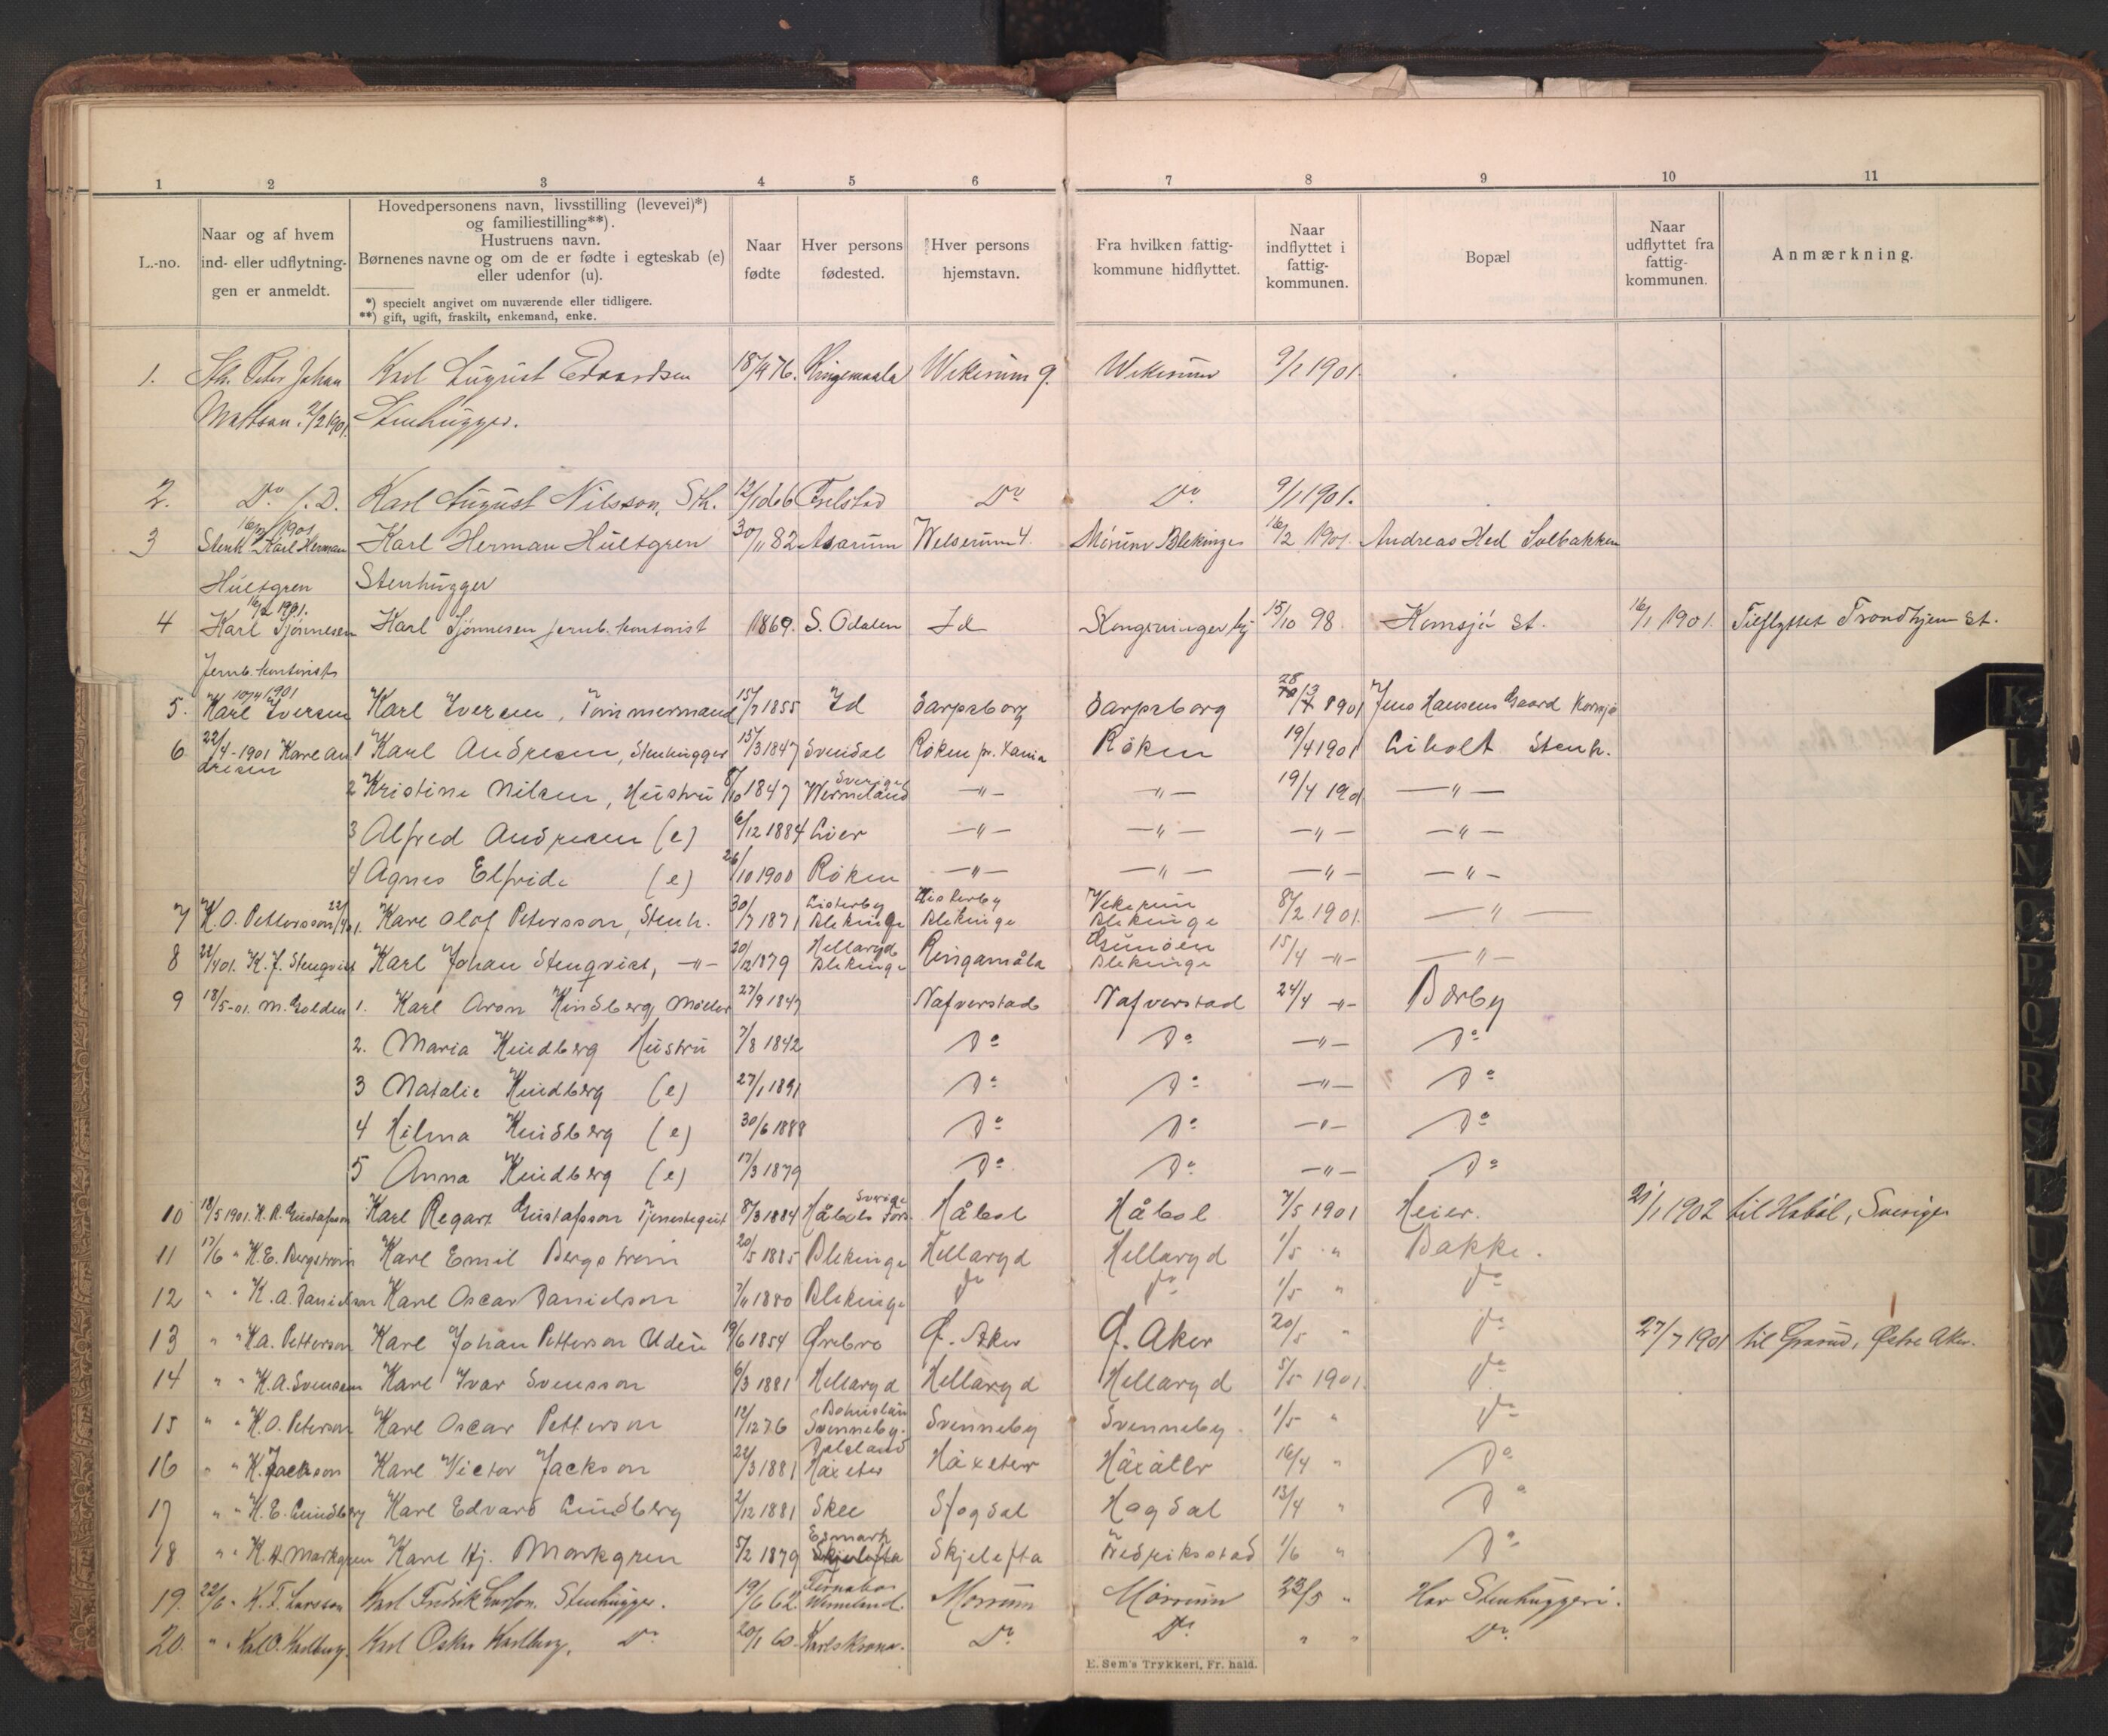 1 2 3 4 5 6 7 8 9 10 11
L.-no.
Naar og af hvem
ind- eller udflytnin-
gen er anmeldt.
Hovedpersonens navn, livsstilling (levevei)*)
og familiestilling**).
Hustruens navn.
Børnenes navne og om de er fødte i egteskab (e)
eller udenfor (u).
*) specielt angivet om nuværende eller tidligere.
**) gift, ugift, fraskilt, enkemand, enke.
Naar
fødte
Hver persons
fødested.
Hver persons
hjemstavn.
Fra hvilken fattig-
kommune hidflyttet.
Naar
indflyttet i
fattig-
kommunen.
Bopæl
Naar
udflyttet fra
fattig-
kommunen.
Anmærkning.
1. Sth. Peter Johan Karl August Edvardsen 18/4 76. Ringemaala Wekerum 9/1 1901.
Mattson. 2/2 1901. Stenhugger.
2. Do f. D. Karl August Nilsson, Sth. 12/10 66 Do Do 9/1 1901.
16/2 1901
3 Stenh Karl Herman Karl Herman Hultgren 30/11 82 Asarum 4. Mörum Blekinge 16/2 1901. Andreas Hed Solbakken
Hultgren Stenhugger
16/2 1901.
4 Karl Tjønnesen Karl Tjønnesen Jernb. kontorist 1869. S. Odalen Id Kongsvinger by 15/10 98 Kornsjø St. 16/1 1901. Tilflyttet Trondhjem St.
Jernb. kontorist
10/4 1901
5. Karl Iversen Karl Iversen, Tømmermand 15/7 1855 Id Sarpsborg Sarpsborg 28 1901 Jens Hansens Gaard Kornsjø
6 22/4-1901 Karl An 1 Karl Andresen, Stenhugger 15/3 1847 Svendal Røken Røken 19/4 1901 Liholt Stenh.
dresen
2 Kristine Nilsen, Hustru 8/10 1847 Sverige Wermeland —"— —"— 19/4 190 —"—
3 Alfred Andresen (e) 6/12 1884 Lier —"— —"— —"— —"—
4 Agnes Elfride (e) 26/10 1900 Røken —"— —"— —"— —"—
7 K. O. Pettersson 22/4 1. Karl Olof Petersson, Stenh. 30/7 1871 Listerby Blekinge Listerby Blekinge Vekerum Blekinge 8/2 1901. —"—
8 22/4 01. K. J. Stenqvist Karl Johan Stenqvist, —"— 20/12 1879 Hellaryd Blekinge Ringamåla Blekinge 15/4 —"— —"—
9 18/5-01. M. Golden 1. Karl Aron Hindberg, Møller 27/9 1847 Nafverstad Nafverstad 24/4 —"— Børby
2. Maria Hindberg Hustru 7/8 1842 Do Do —"— Do
3 Natalie Hindberg (e) 27/1 1891 Do Do —"— Do
4 Hilma Hindberg (e) 30/6 1888 Do Do —"— Do
5 Anna Hindberg (e) 17/3 1879 Do Do —"— Do
10 18/5 1901. K. R. Gustafsson Karl Regart Gustafsson Tjenestegut 8/3 1884 Sverige Håbols Håbol Håbol 7/5 1901 Heier. 21/1 1902 til Håbøl, Sverige
11 17/6 " K. E. Bergstrøm Karl Emil Bergstrøm 20/5 1885 Blekinge Hellaryd Hellaryd 1/5 " Bakke.
12 " " K. A. Danielson Karl Oscar Danielson 7/11 1880 Blekinge Do Do 1/5 " Do
13 " " K. A. Petterson Karl Johan Petterson Udén 19/6 1854 Ørebro Ø. Aker Ø. Aker 20/5 " Do 27/7 1901 til Grorud, Østre Aker.
14 " " K. A. Svensson Karl Ivar Svensson 6/3 1881 Hellaryd Hellaryd Hellaryd 5/5 1901. Do
15 " " K. O. Peterson Karl Oscar Petterson 12/12 76 Bohuslän Svenneby. Svenneby Svenneby 1/5 " Do
16 " " K. Jackson Karl Victor Jackson 22/3 1881 Dalsland Håxeter Håxeter 16/4 " Do
17 " " K. E. Lundberg Karl Edvard Lundberg 2/12 1881 Skee Hogdal Hogdal 13/4 " Do
18 " " K. H. Markgren Karl Hj. Markgren 5/2 1879 Skjelefta Skjelefta Fredriksstad 1/6 " Do
19. 22/6 " K. F. Larsson Karl Fredrik Larsson. Stenhugger. 19/6 62 Fernebo Wermland. Mörrum Mörrum 23/5 " Hos Stenhuggeri.
20. " " Karl O. Karlberg. Karl Oskar Karlberg. Do 20/1 60 Karlskrona. Do Do " " Do.
E. Sem's Trykkeri, Fr. hald.
K
L
M
N
O
P
Q
R
S
T
U
V